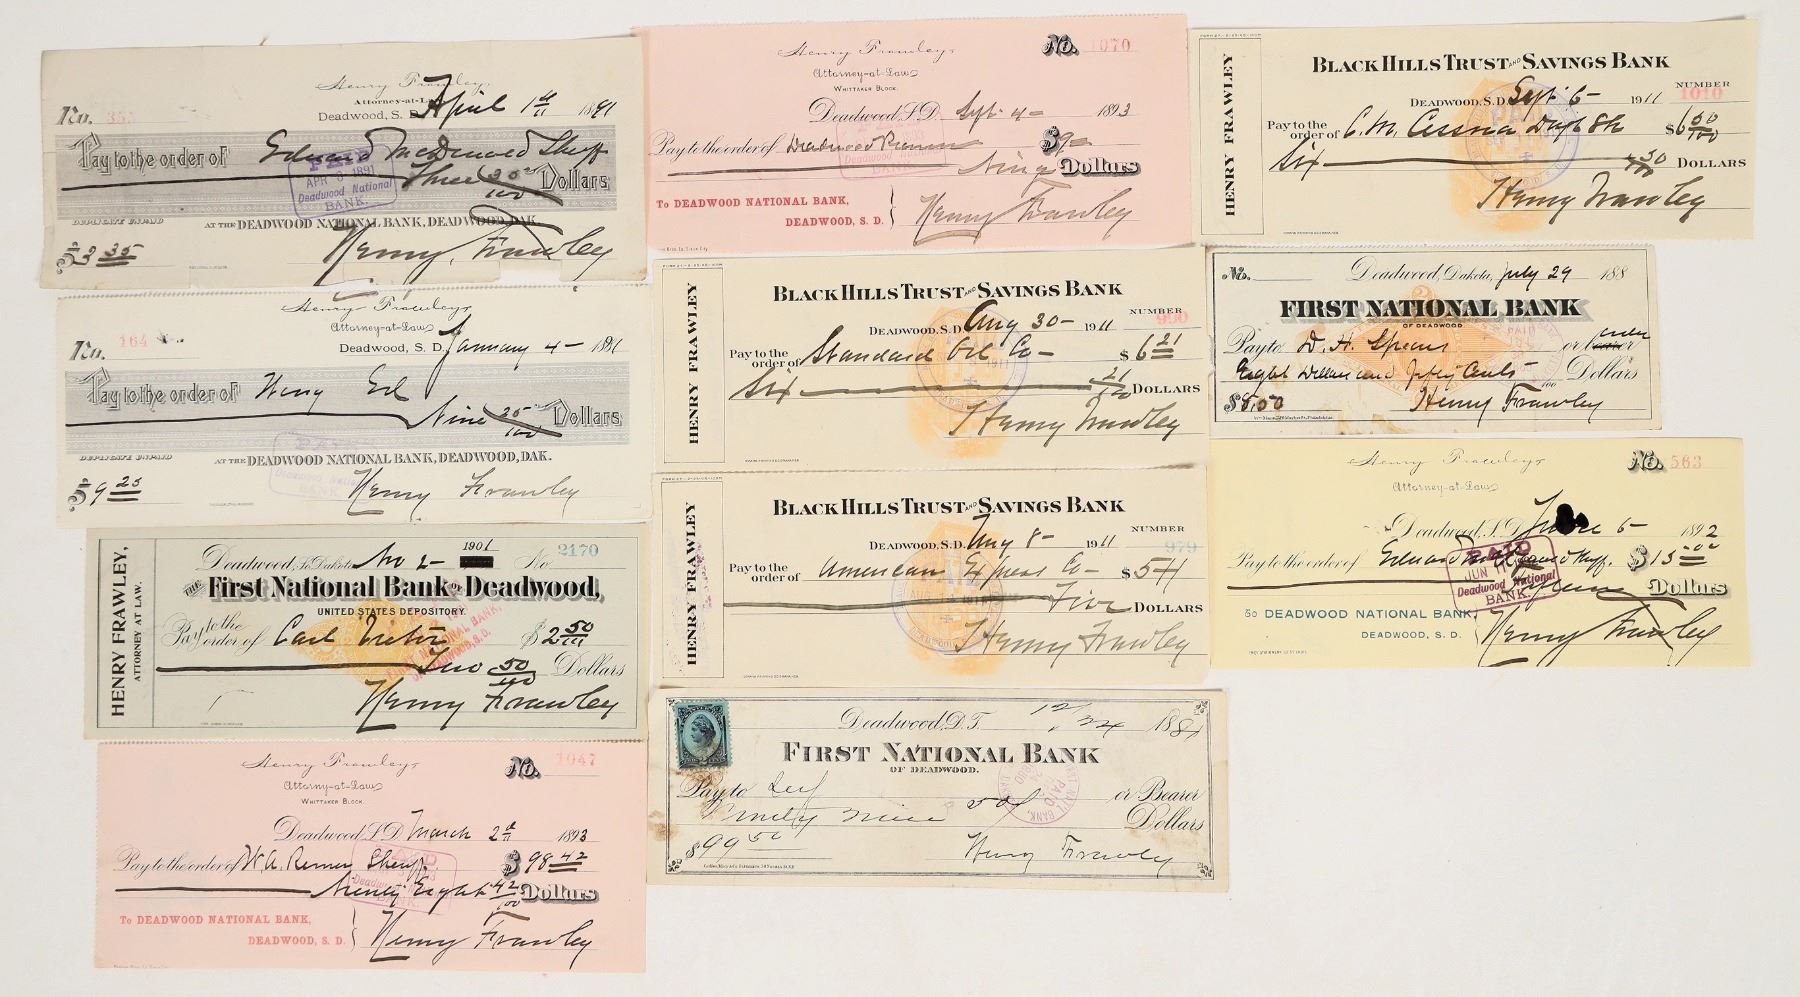 Henry Frawley,
Attorney-at-Law
No. 355
Deadwood, S. D. April 1st 1891
Pay to the order of Edward McDonald Sheff
Three 35/100 Dollars
PAID
APR 3 1891
Deadwood National
BANK.
DUPLICATE UNPAID
AT THE DEADWOOD NATIONAL BANK, DEADWOOD, DAK.
$3 35
Henry Frawley
Henry Frawley,
Attorney-at-Law
No. 164
Deadwood, S. D. January 4- 1891
Pay to the order of
Nine 25/100 Dollars
DUPLICATE UNPAID
AT THE DEADWOOD NATIONAL BANK, DEADWOOD, DAK.
$9 25
Henry Frawley
HENRY FRAWLEY,
ATTORNEY AT LAW.
Deadwood, So. Dakota 2- 1901 No. 2170
THE First National Bank OF Deadwood,
UNITED STATES DEPOSITORY.
Pay to the
order of Carl $2 50
Two 50/100 Dollars
Henry Frawley
Henry Frawley,
Attorny-at-Law
WHITTAKER BLOCK.
No. 1047
Deadwood, S.D. March 2d 1893
Pay to the order of W.A. Remer Sheriff $98 42
Ninety Eight 42/100 Dollars
TO DEADWOOD NATIONAL BANK,
DEADWOOD, S. D.
Henry Frawley
Henry Frawley,
Attorney-at-Law
WHITTAKER BLOCK.
No. 1070
Deadwood, S.D. Sept 4- 1893
Pay to the order of Deadwood Pioneer $9
Nine Dollars
To DEADWOOD NATIONAL BANK,
DEADWOOD, S. D.
Henry Frawley
HENRY FRAWLEY
BLACK HILLS TRUST AND SAVINGS BANK
DEADWOOD, S.D. Aug 30- 1911
NUMBER
990
Pay to the
order of Standard Oil Co- $6 21
Six 21/100 DOLLARS
Henry Frawley
HENRY FRAWLEY
BLACK HILLS TRUST AND SAVINGS BANK
DEADWOOD, S.D. Aug 8- 1911
NUMBER
979
Pay to the
order of American Express Co- $5
Five DOLLARS
Henry Frawley
Deadwood, D.T. 12/24 188
FIRST NATIONAL BANK
OF DEADWOOD.
Pay to Self or Bearer
Ninety Nine 50/ Dollars
$99 50
Henry Frawley
HENRY FRAWLEY
BLACK HILLS TRUST AND SAVINGS BANK
DEADWOOD, S.D. Sept 6- 1911
NUMBER
1010
Pay to the
order of C.M. Cessna $6 50/100
Six 50/100 DOLLARS
Henry Frawley
No. Deadwood, Dakota, July 29 188
FIRST NATIONAL BANK
OF DEADWOOD
Pay to D. H. Spears or bearer order
Eight Dollars and Fifty Cents /100 Dollars
$8.50
Henry Frawley
Henry Frawley,
Attorney-at-Law
No. 563
Deadwood, S.D. June 6- 1892
Pay to the order of Edward $15 00
Dollars
PAID
JUN
Deadwood National
BANK.
To DEADWOOD NATIONAL BANK,
DEADWOOD, S. D.
Henry Frawley